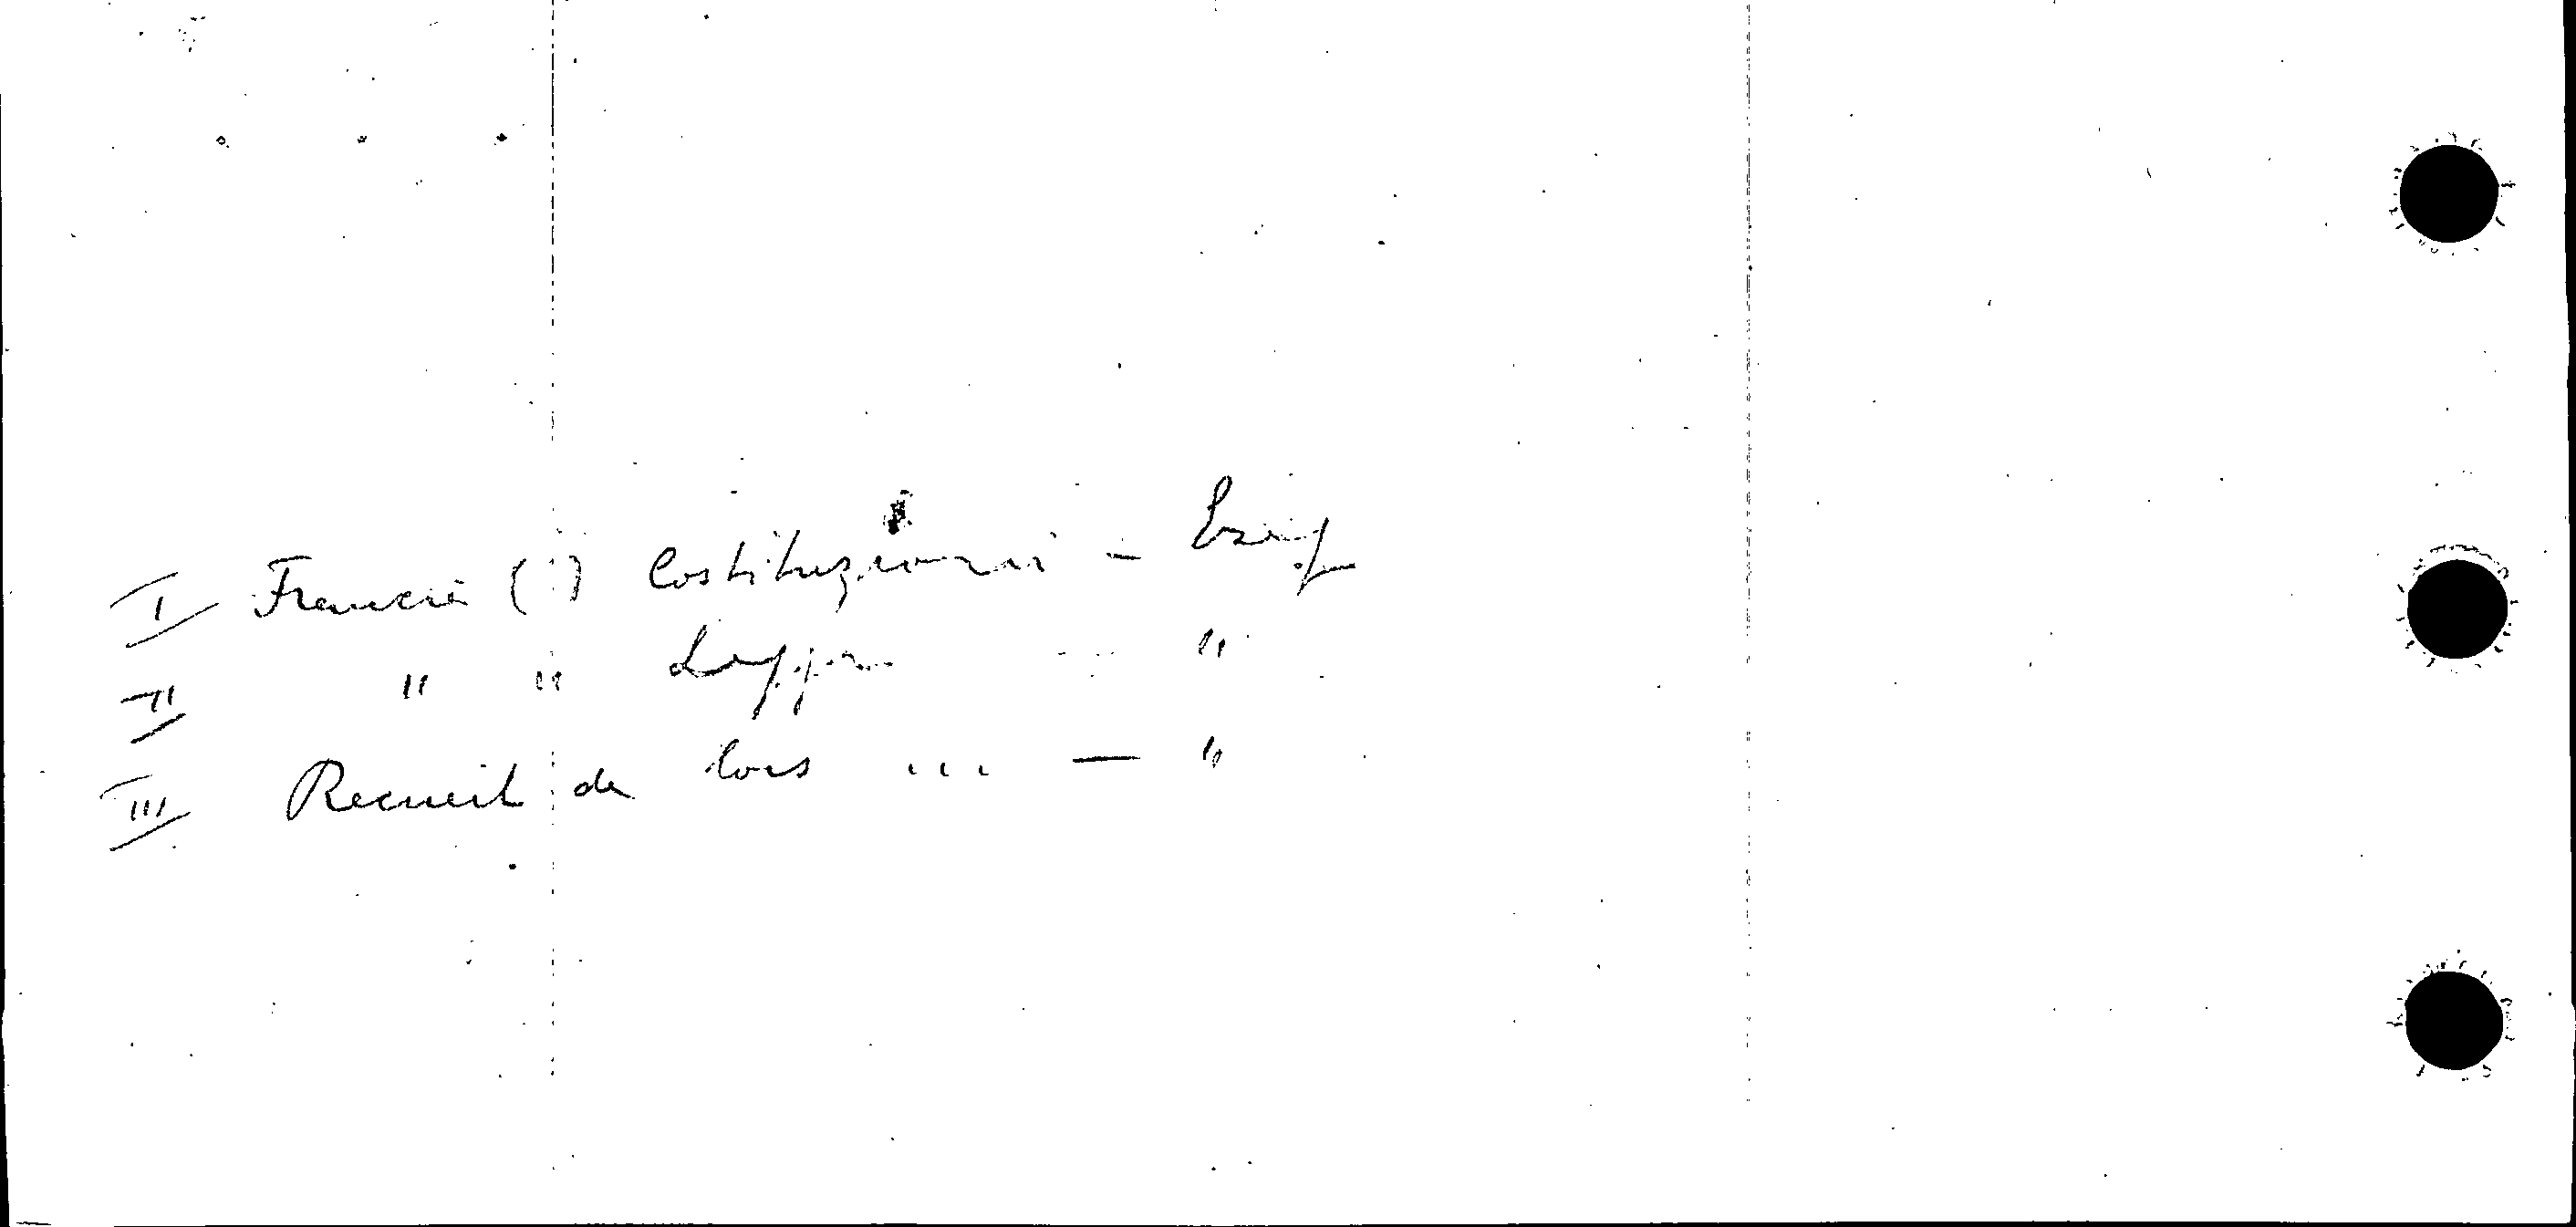 I Francia ( ) Costituzioni -
II " " Leggi - "
III Recueil de lois ... — "